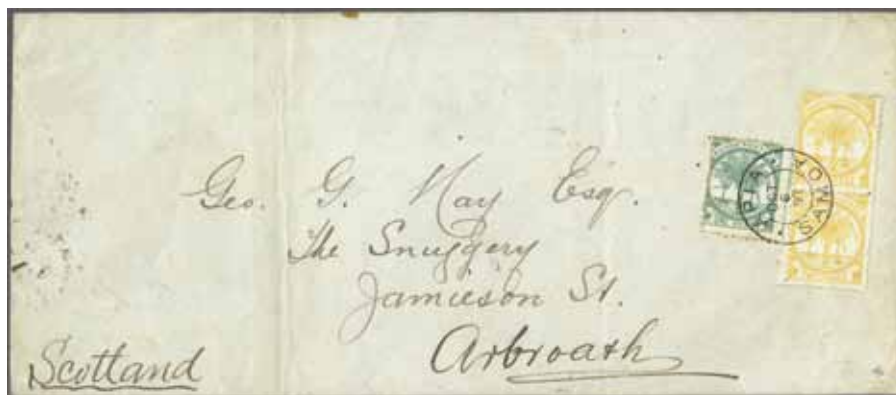 Geo. G. Hay Esq.
The Snuggery
Jamieson St.
Arbroath
Scotland
APIA SAMOA